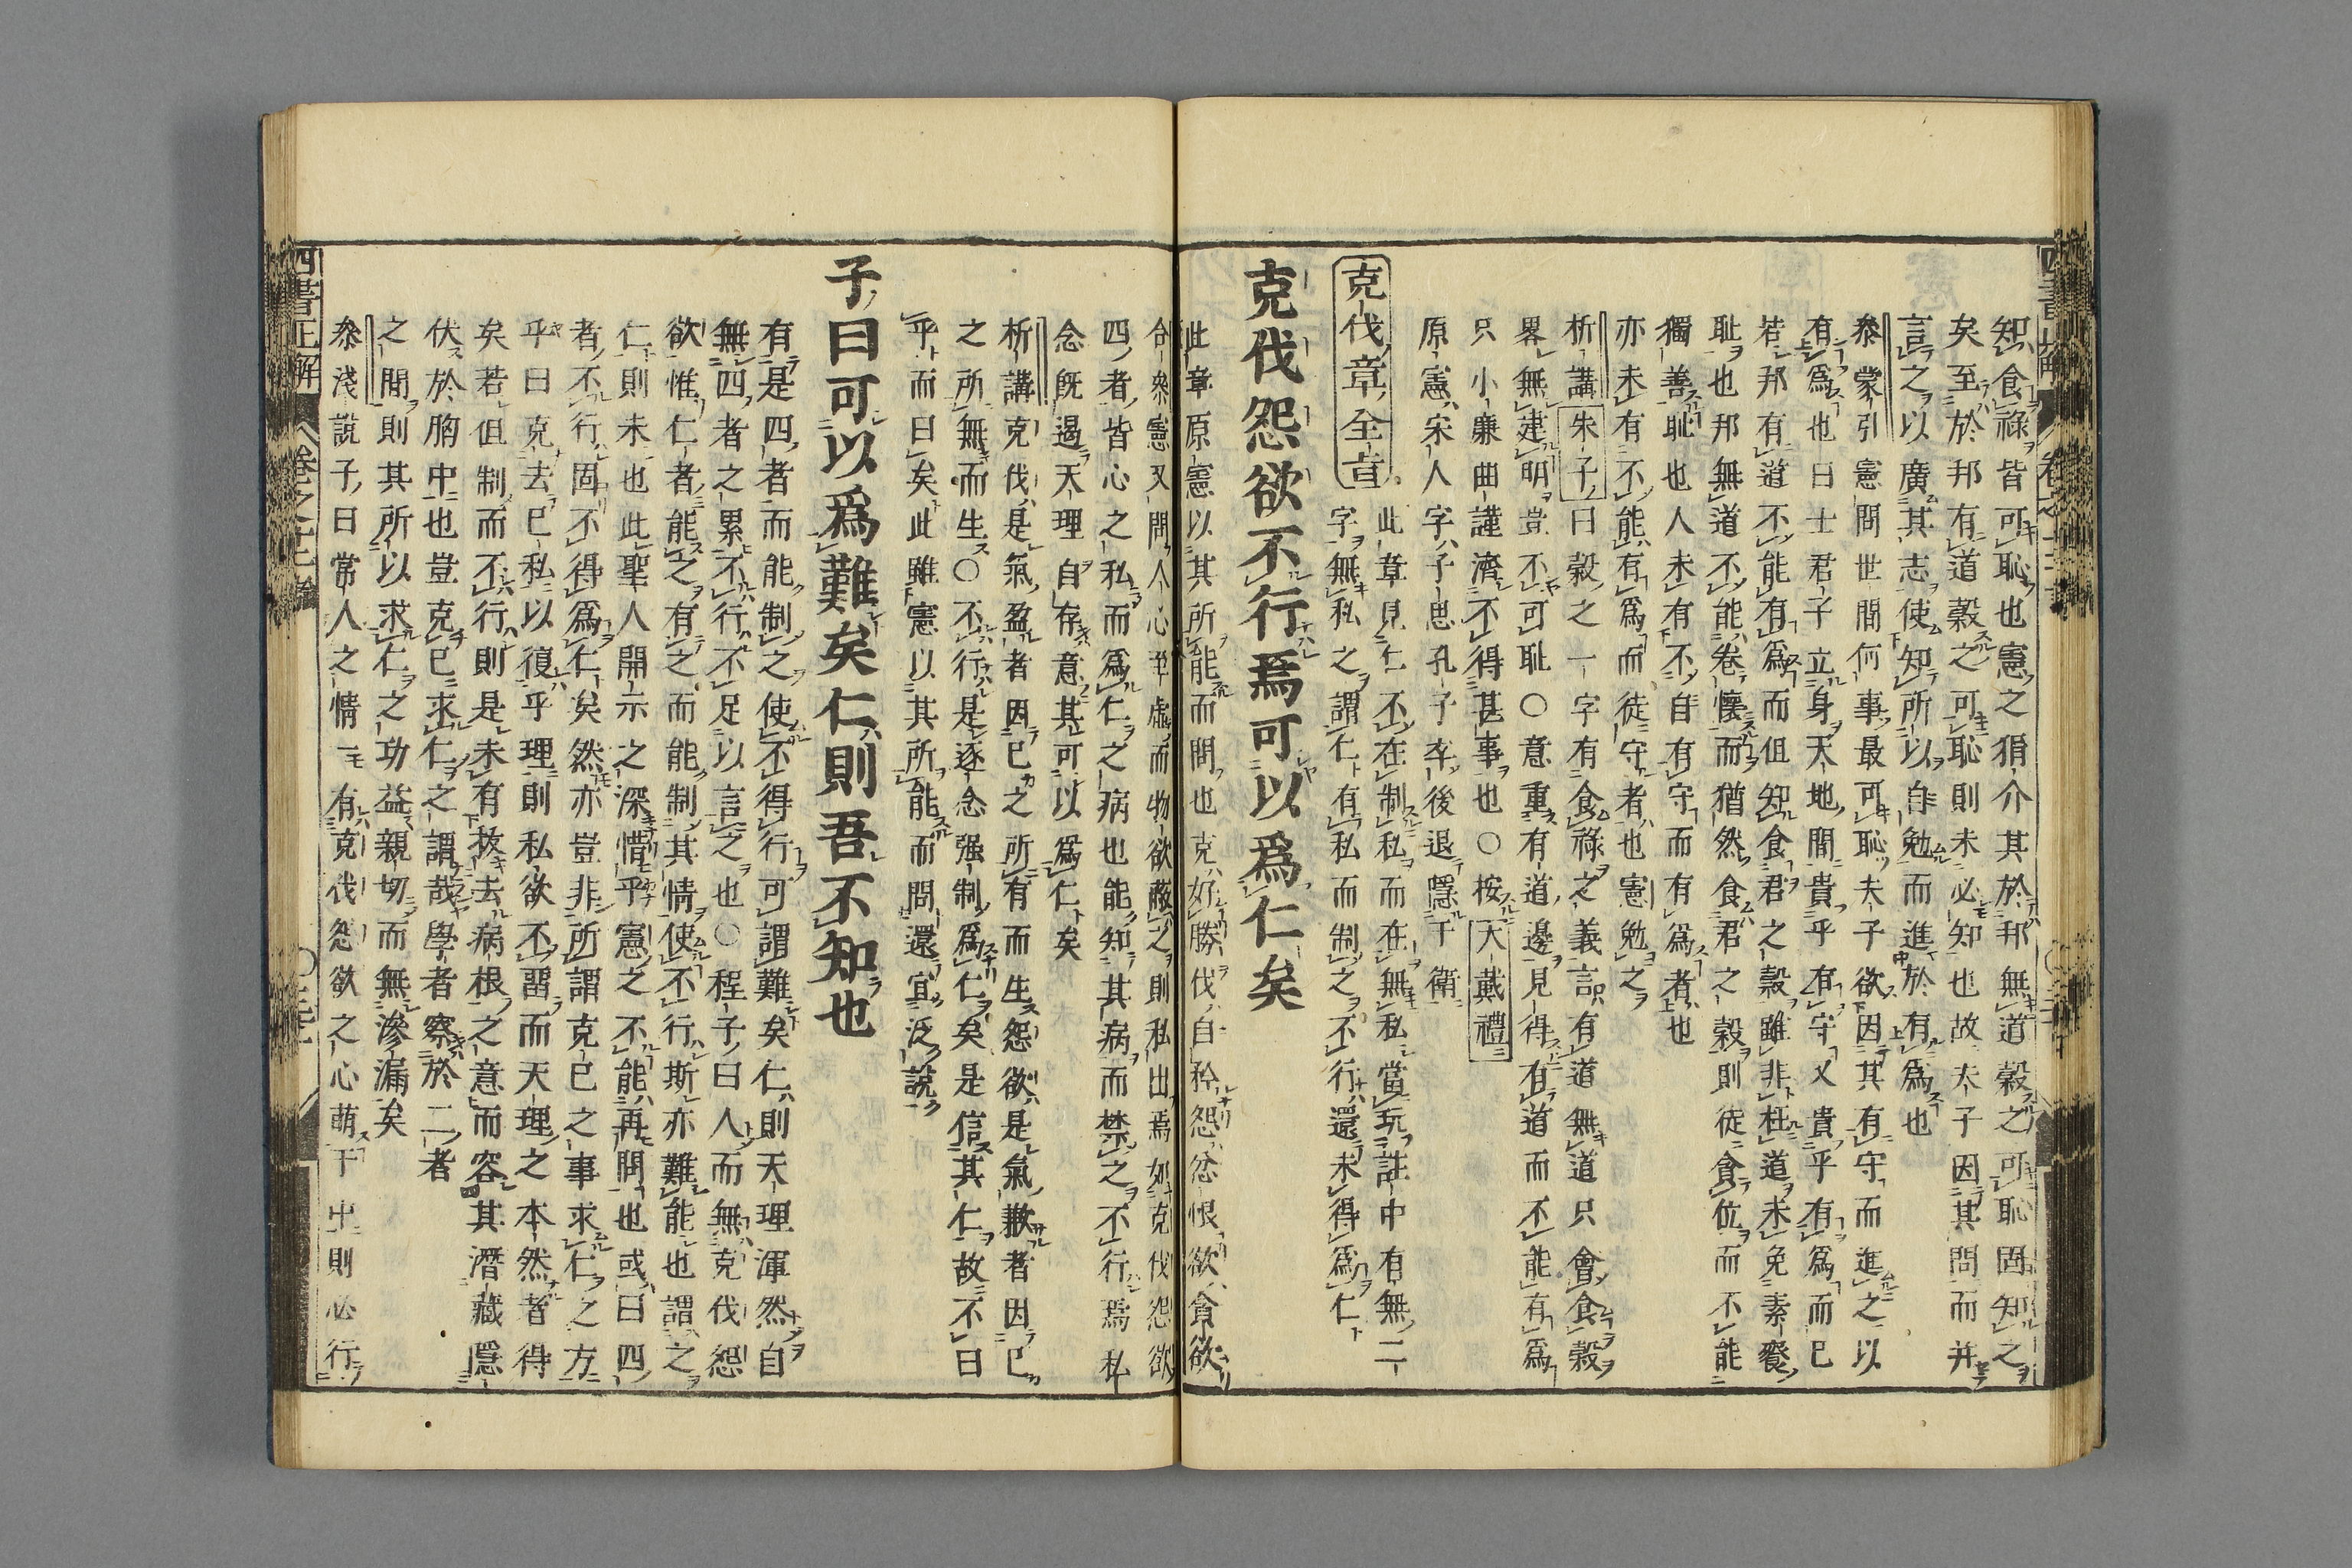 知食祿皆可恥也憲之狷介其於邦無道穀之可恥固知之
矣至於邦有道穀之可恥則未必知也故夫子因其問而幷
言之以廣其志使知所以自勉而進於有爲也
叅蒙引憲問世間何事最可恥夫子欲因其有守而進之以
有爲也曰士君子立身天地間貴乎有守又貴乎有爲而已
若邦有道不能有爲而但知食君之穀雖非枉道未免素餐
恥也邦無道不能卷懷而猶然食君之穀則徒貪位而不能
獨善恥也人未有不自有守而有爲者也
亦未有不能有爲而徒守者也憲勉之
析講朱子曰穀之一字有食祿之義言有道無道只會食穀
畧無建明豈不可恥〇意重有道邊見得有道而不能有爲
只小廉曲謹濟不得甚事也〇按大戴禮
原憲宋人字子思孔子卒後退隱于衛
克伐章全旨此章見仁不在制私而在無私當玩註中有無二
字無私之謂仁有私而制之不行還未得爲仁
克伐怨欲不行焉可以爲仁矣
此章原憲以其所能而問也克好勝伐自矜怨忿恨欲貪欲
合叅憲又問人心至虛而物欲蔽之則私出焉如克伐怨欲
四者皆心之私而爲仁之病也能知其病而禁之不行焉私
念旣遏天理自存意其可以爲仁矣
析講克伐是氣盈者因己之所有而生怨欲是氣歉者因己
之所無而生〇不行是逐念强制爲仁矣是信其仁故不曰
乎而曰矣此雖憲以其所能而問還宜泛說
子曰可以爲難矣仁則吾不知也
有是四者而能制之使不得行可謂難矣仁則天理渾然自
無四者之累不行不足以言之也〇程子曰人而無克伐怨
欲惟仁者能之有之而能制其情使不行斯亦難能也謂之
仁則未也此聖人開示之深惜乎憲之不能再問也或曰四
者不行固不得爲仁矣然亦豈非所謂克己之事求仁之方
乎曰克去己私以復乎理則私欲不留而天理之本然者得
矣若但制而不行則是未有拔去病根之意而容其潛藏隱
伏於胸中也豈克己求仁之謂哉學者察於二者
之間則其所以求仁之功益親切而無滲漏矣
叅淺說子曰常人之情一有克伐怨欲之心萌于中則必行
四書正解
卷之十三